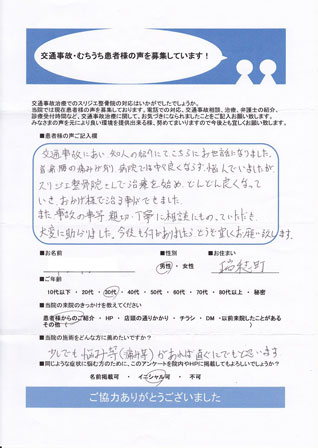 交通事故・むちうち患者様の声を募集しています!
交通事故治療でのスリジエ整骨院の対応はいかがでしたでしょうか。
当院では現在患者様の声を募集しております。電話での対応、交通事故相談、治療、弁護士の紹介、
診療受付時間など、交通事故治療に関して、お気づきになられましたことをご記入お願いします。
みなさまの声を元により良い環境を提供出来る様、努めてまいりますので今後とも宜しくお願い致します。
■患者様の声ご記入欄
交通事故にあい 知人の紹介でこちらにお世話になりました。
首・肩・腰の痛みがあり 病院では中々良くならず、悩んでいましたが
スリジエ整骨院さんで治療を始め、どんどん良くなって
いき、おかげ様で治る事ができました。
また 事故の事等 親切・丁寧に相談にものって いただき、
大変に助かりました。今後も何かありましたらどうぞ宜しくお願い致します。
■お名前 ■性別 ■お住まい
男性・女性 瑞穂町
■ご年齢
10代以下・20代・30代・40代・50代・60代・70代・80代以上・秘密
■当院の来院のきっかけを教えてください
患者様からのご紹介・HP・店頭の通りかかり・チラシ・DM・以前来院したことがある
その他( )
■当院の施術をどんな方に薦めたいですか?
少しでも悩み等(痛み等)があれば直ぐにでもと思います
■同じような症状に悩む方のために、このアンケートを院内やHPに掲載してもよろしいでしょうか?
名前掲載可・イニシャル可・不可
ご協力ありがとうございました